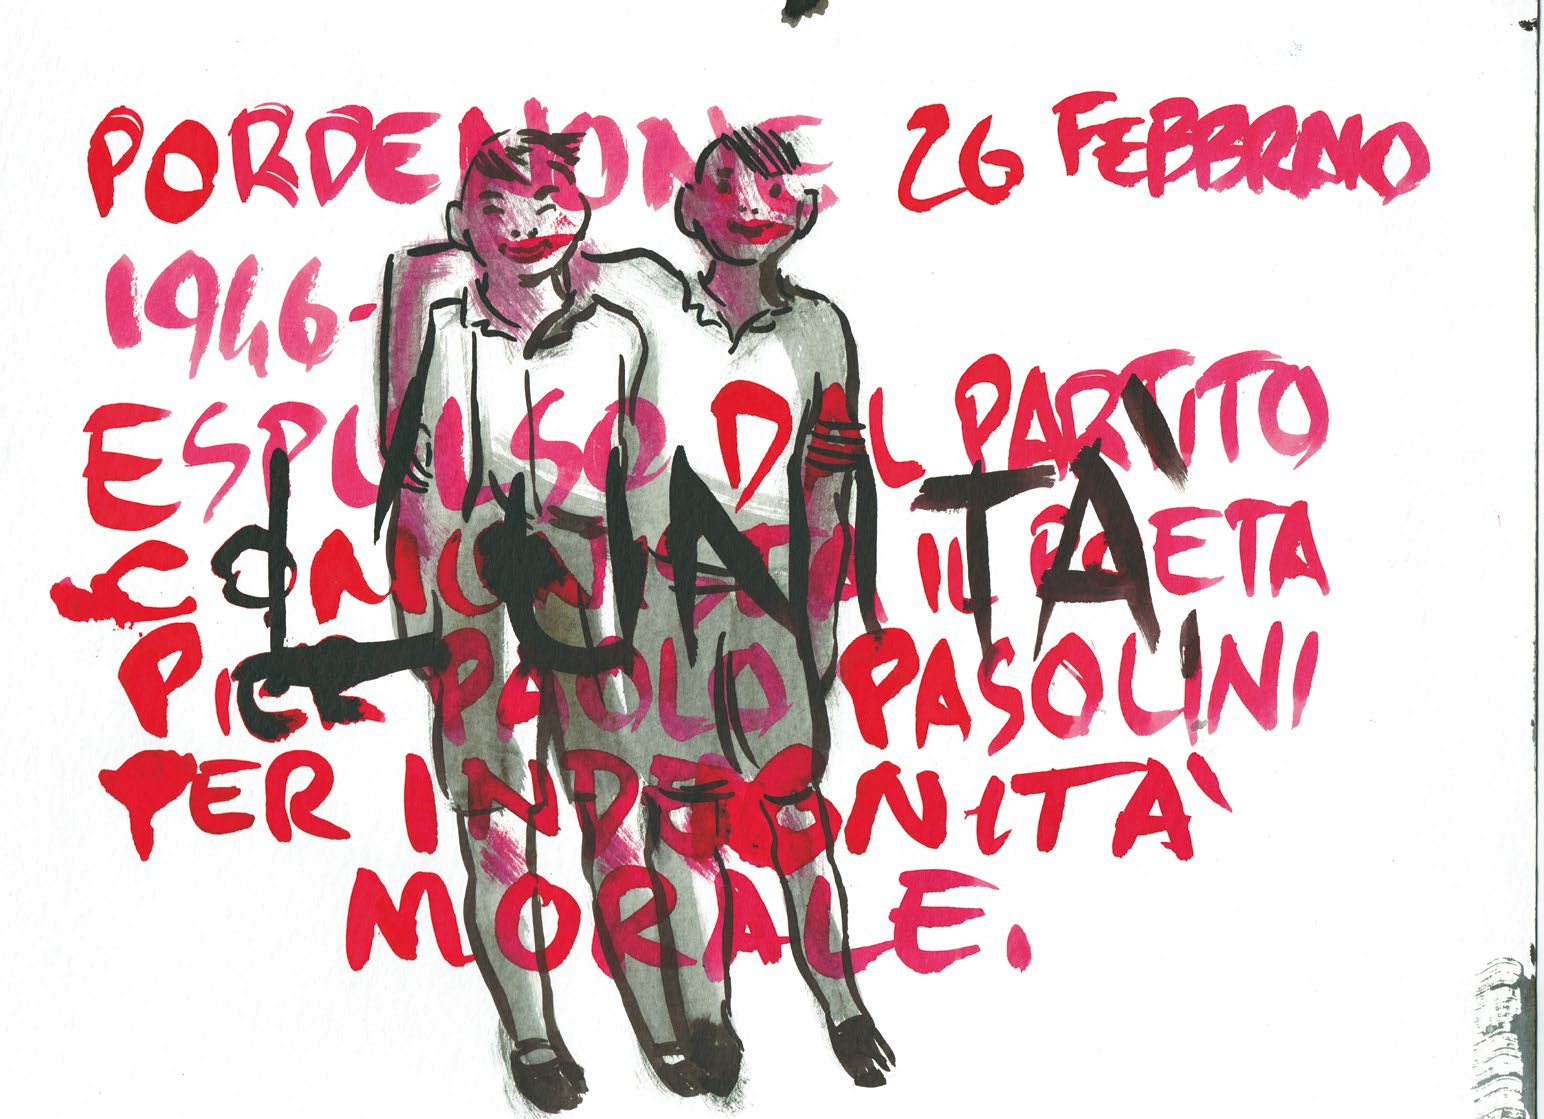 PORDENONE 26 FEBBRAIO
1946-
ESPULSO DAL PARTITO
L'UNITA'
COMUNISTA IL POETA
PIER PAOLO PASOLINI
PER INDEGNITA'
MORALE.